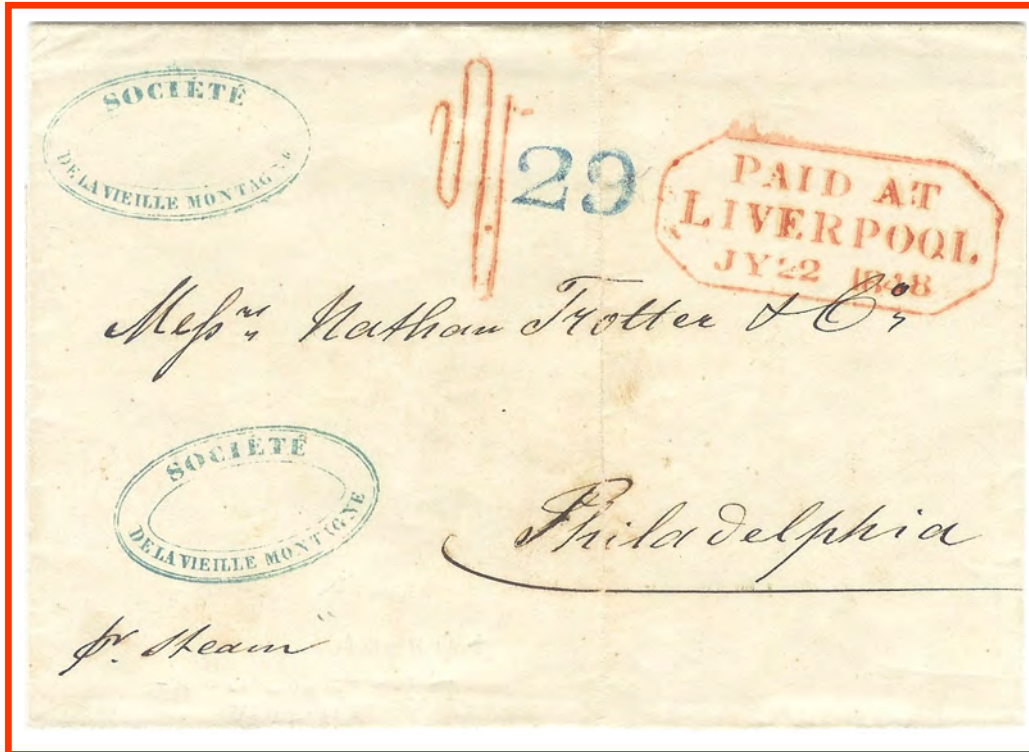 SOCIÉTÉ
DE LA VIEILLE MONTAGNE
1/
29
PAID AT
LIVERPOOL
JY 22 1848
Messrs Nathan Trotter & Co,
SOCIÉTÉ
DE LA VIEILLE MONTAGNE
Philadelphia
pr. Steam